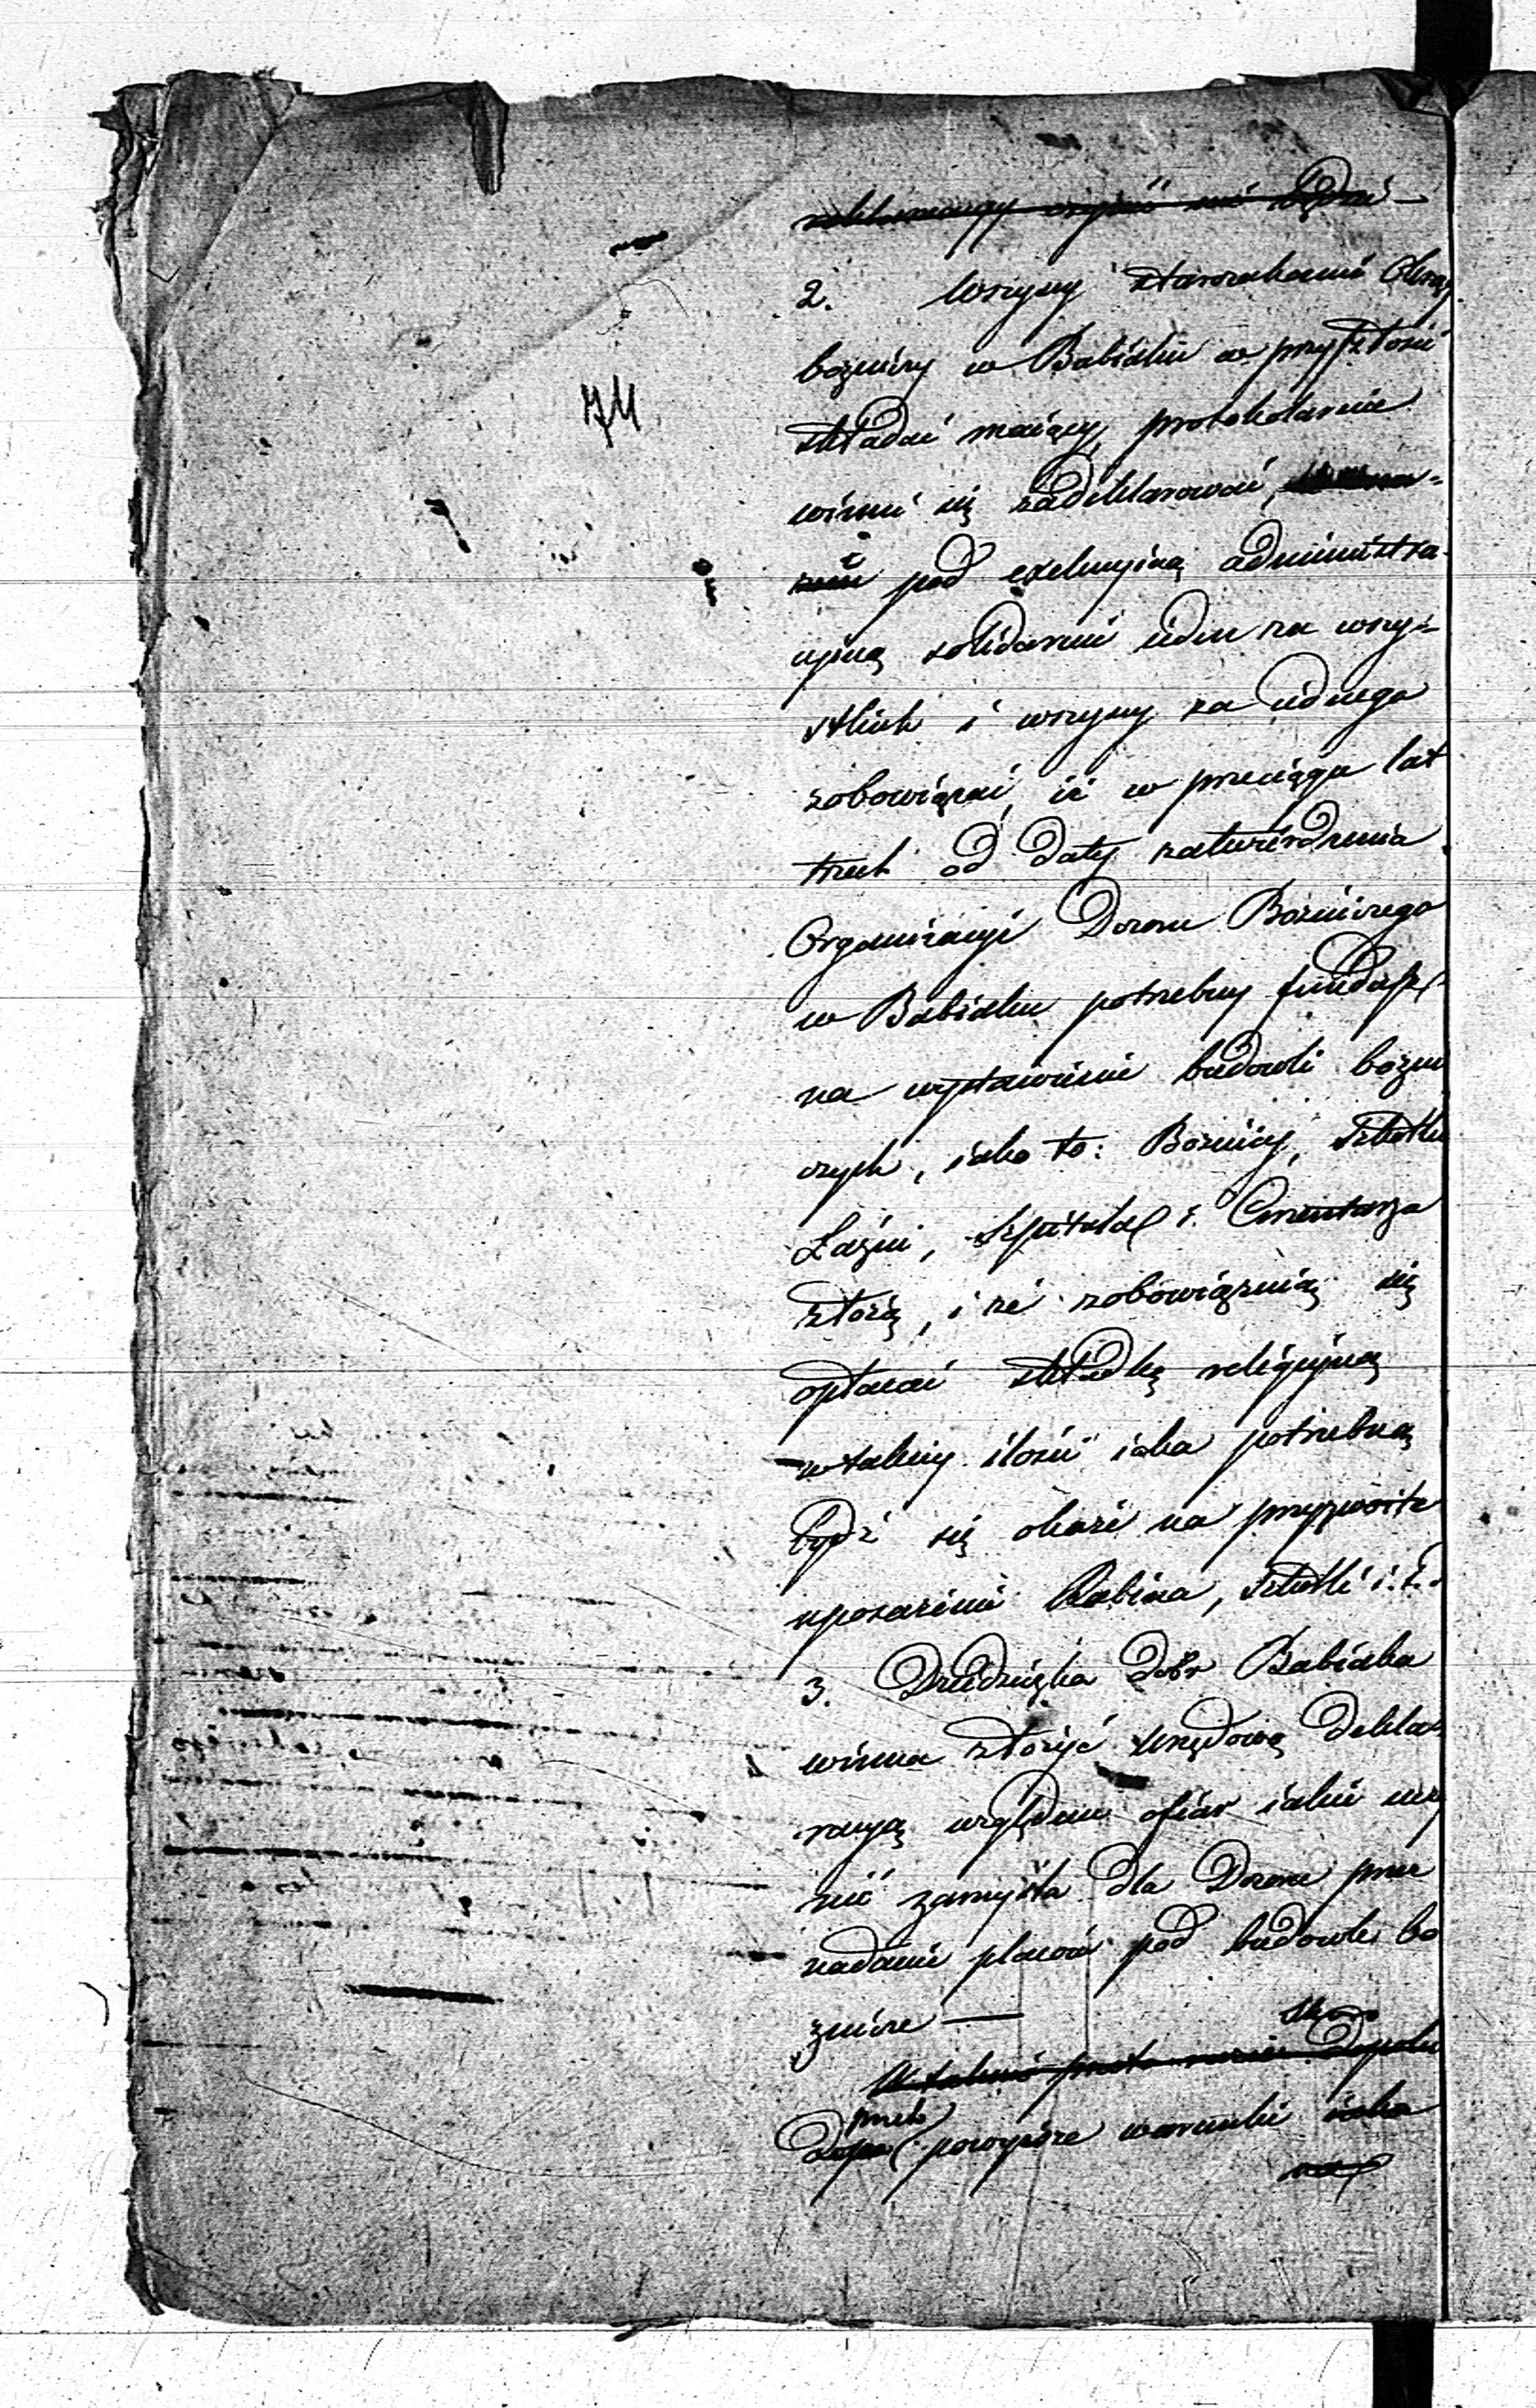 reklamacyy czynić nie będzie —
2. Wszyscy starozakonni Okręg
bożniczy w Babiaku w przyszłości
składać maiący, protokolarnie
74
winni się zadeklarować,
i pod exekucyiną administra-
cyiną solidarnie ieden za wszy-
stkich i wszyscy za iednego
zobowiązać, iż w przeciągu lat
trzech od daty zatwierdzenia
Organizacyi Dozoru Bożniczego
w Babiaku potrzebny fundusz
na wystawienie budowli bożni
czych, iako to: Bożnicy, Szkółki
Łaźni, Szpitala i Cmentarza
złożą, i że zobowiązuią się
opłacać składkę religiyną
w takiey ilości iaka potrzebną
bydź się okaże na przyzwoite
uposażenie Rabina, Szkółki i.t.d.
3. Dziedziczka dóbr Babiaka
winna złożyć urzędową dekla-
racyą względem ofiar iakie uczy
nić zamyśla dla Dozoru przez
nadanie placów pod budowle bo
żnicze —
Skoro
W takim przeto razie Dopoki
przeto
powyższe warunki iako